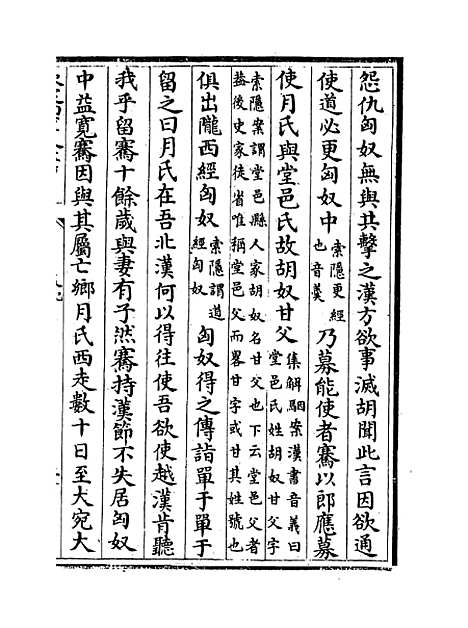 怨仇匈奴無與共擊之漢方欲事滅胡聞此言因欲通
使道必更匈奴中
索隱更經
也音羹
乃募能使者騫以郎應募
使月氏與堂邑氏故胡奴甘父
集解駰案漢書音義曰
堂邑氏姓胡奴甘父字
索隱案謂堂邑縣人家胡奴名甘父也下云堂邑父者
葢後史家徒省唯稱堂邑父而畧甘字或甘其姓號也
俱出隴西經匈奴
索隱謂道
經匈奴
匈奴得之傳詣單于單于
留之曰月氏在吾北漢何以得往使吾欲使越漢肯聽
我乎留騫十餘歲與妻有子然騫持漢節不失居匈奴
中益寛騫因與其屬亡鄉月氏西走數十日至大宛大